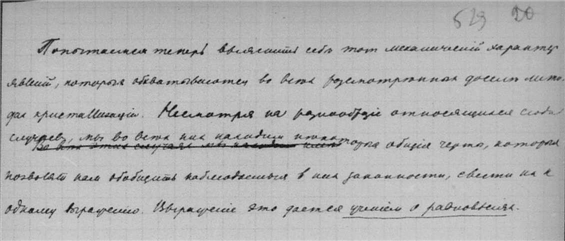 529 20
Попытаемся теперь выяснить себе тот механическій характер
явленій, которыя обхватываются во всех разсмотренных доселе мето-
дах кристаллизаціи. Несмотря на разнообразіе относящихся сюда
случаев, мы во всех них находим некоторыя общія черты, которыя
Во всех этих случаях мы находим
позволят нам обобщить наблюдаемыя в них законности, свести их к
одному выраженію. Выраженіе это дается ученіем о равновесіях.